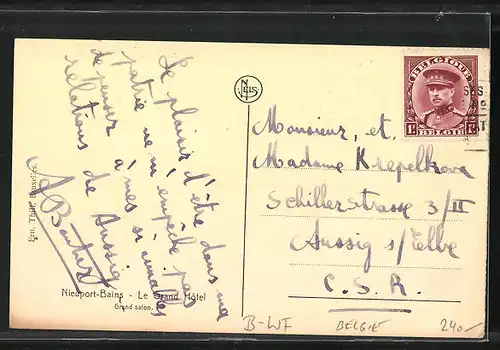 Le plaisir d'être dans ma
patrie ne m'empêche pas
de penser à mes si aimables
relations de Aussig
Ern. Thill, Bruxelles.
NELS
Nieuport-Bains - Le Grand Hôtel
Grand salon.
BELGIQUE
1F 1F
BELGIE
Monsieur et
Madame Krepelkova
Schillerstrasse 3/II
Aussig s/Elbe
C.S.R.
B-WF
BELGIE
240.-